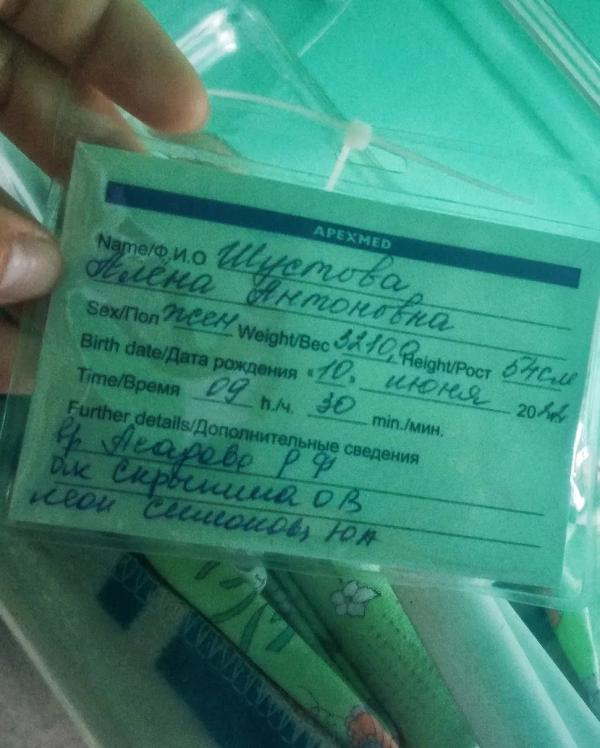 APEXMED
Name/Ф.И.О Шустова
Алёна Антоновна
Sex/Пол жен Weight/Вес 3210,0 Height/Рост 54см
Birth date/Дата рождения «10» июня 2022
Time/Время 09 h./ч. 30 min./мин.
Further details/Дополнительные сведения
вр Асадова Р Ф
а/к Скрынина О В
неон Симонова Ю А